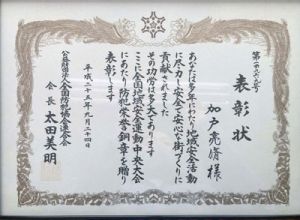 表彰状
加戸 亮脩 様
あなたは多年にわたり地域安全活動
に尽力し安全で安心な街づくりに
貢献されました
その功労は多大であります
ここに全国地域安全運動中央大会
にあたり防犯栄誉銅章を贈り
表彰します
平成二十五年九月二十四日
公益財団法人全国防犯協会連合会
会長 太田美明